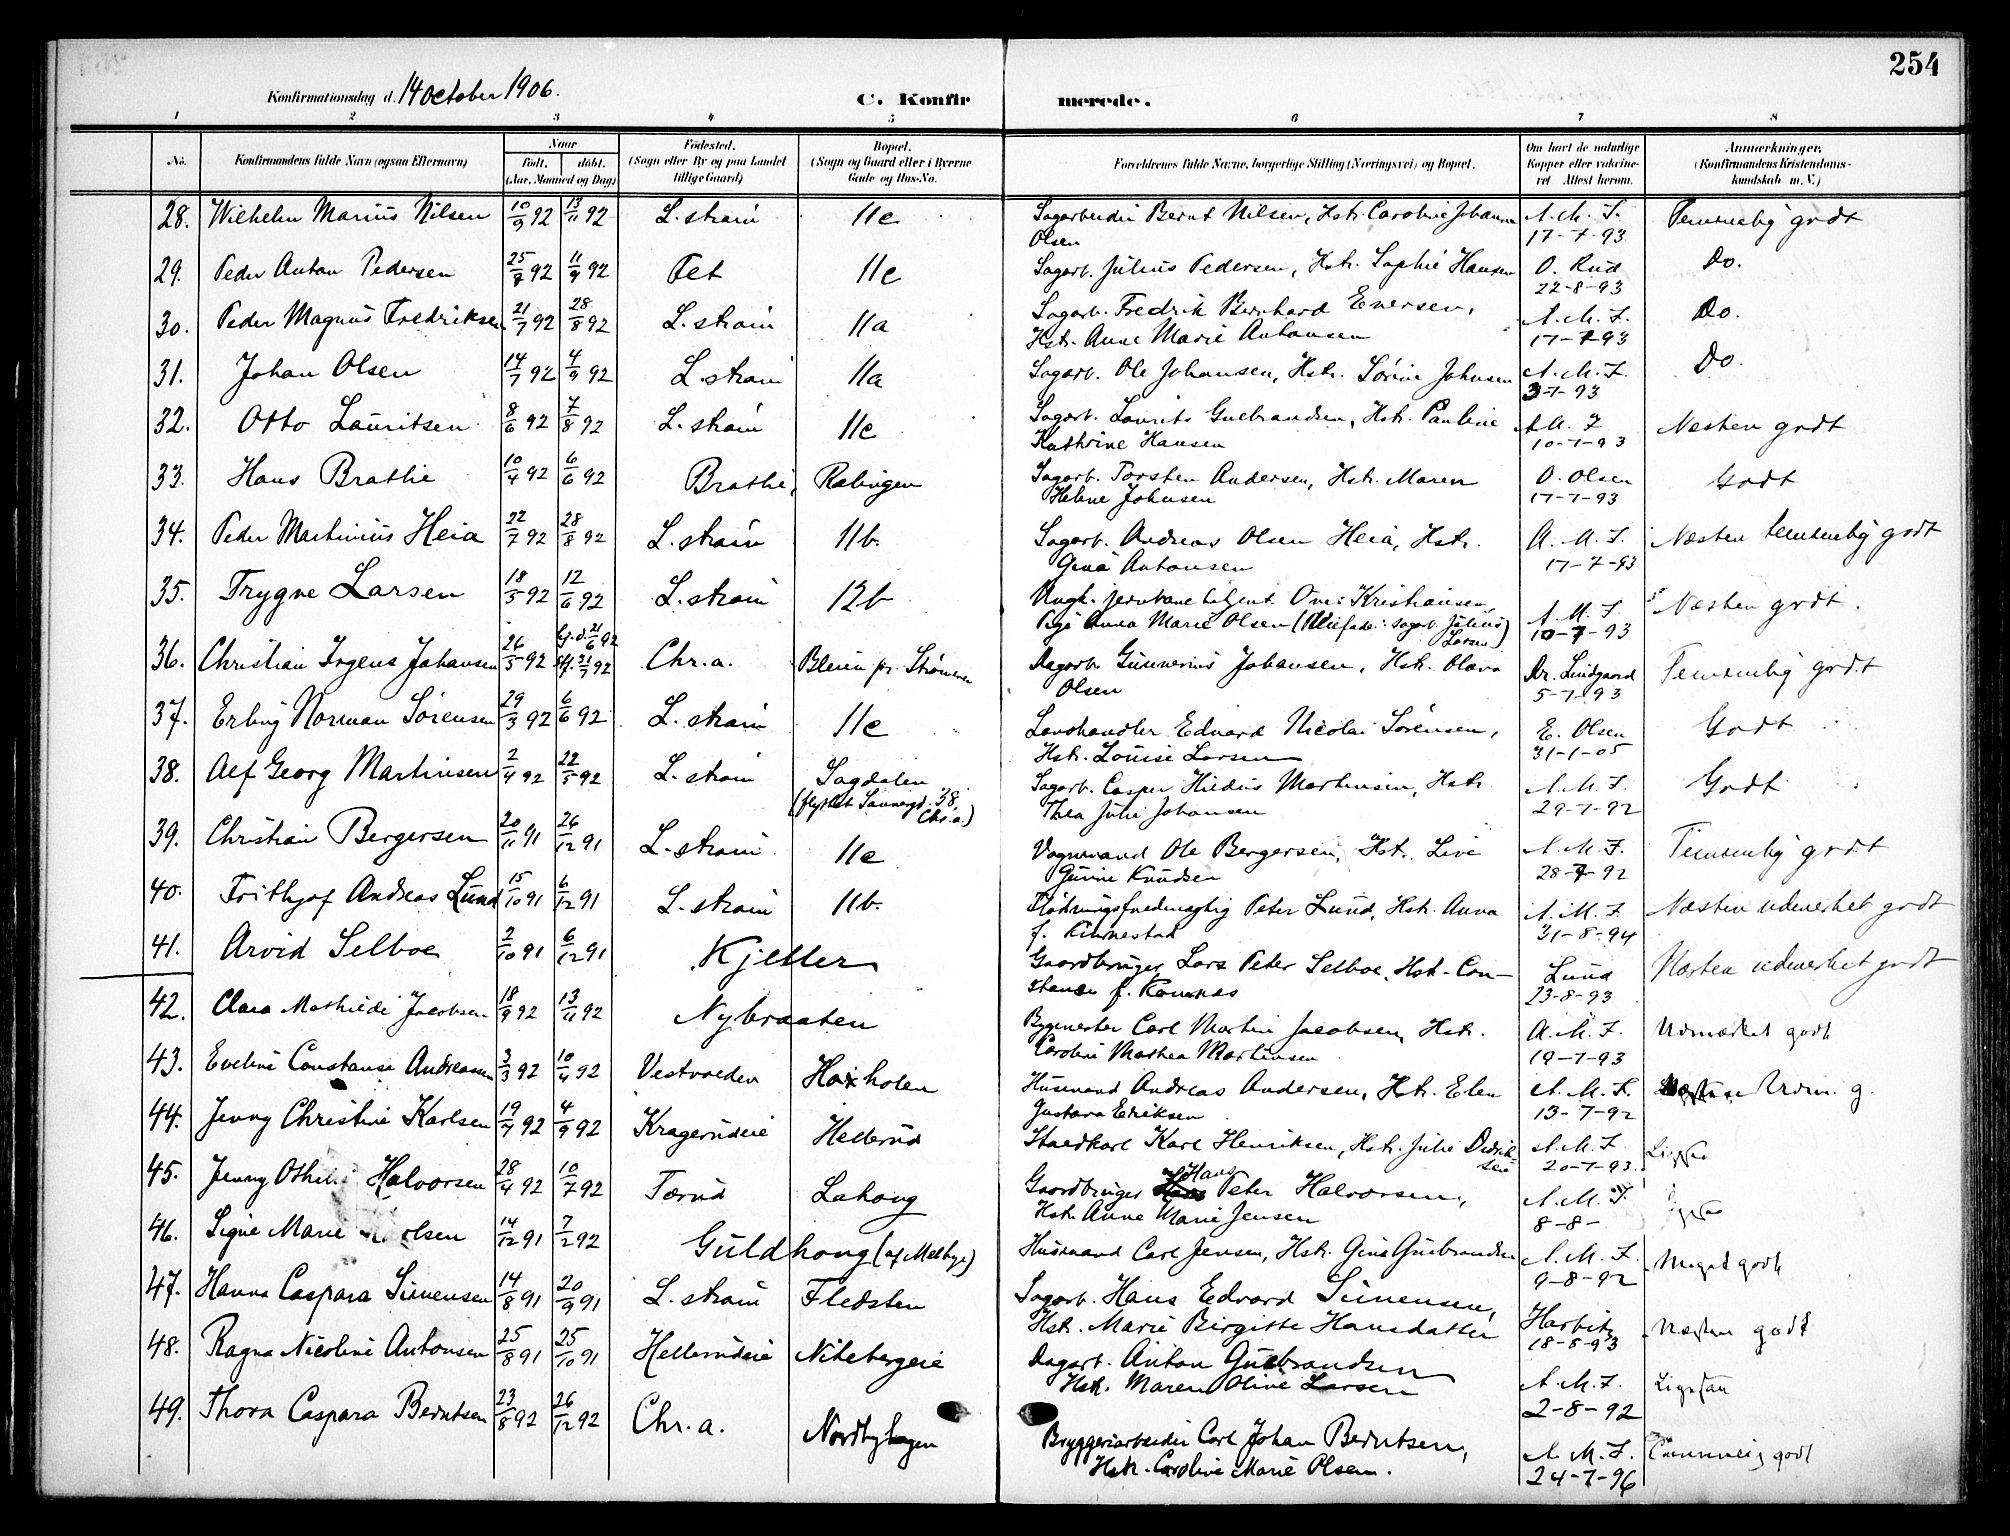 254
Konfirmationsdag d. 14 October 1906.
C. Konfirmerede.
1 2 3 4 5 6 7 8
No. Konfirmandens fulde Navn (ogsaa Efternavn) Naar født. døbt. (Aar, Maaned og Dag) Fødested. (Sogn eller By og paa Landet tillige Gaard) Bopæl. (Sogn og Gaard eller i Byerne Gade og Hus-No. Forældrenes fulde Navne, borgerlige Stilling (Næringsvei) og Bopæl. Om havt de naturlige Kopper eller vakcineret. Attest herom. Anmærkninger. (Konfirmandens Kristendomskundskab m. V.)
28. Wilhelm Marius Nilsen 10/9 92 13/11 92 L.strøm 11c Sagarbeider Bernt Nilsen, Hstr. Caroline Johanne A. M. F. Temmelig godt
Olsen 17-7-93
29. Peder Anton Pedersen 25/7 92 11/9 92 Fet 11c Sagarb. Julius Pedersen, Hstr. Sophie Hansen O. Rud Do.
22-8-93
30. Peder Magnus Fredriksen 21/7 92 28/8 92 L.strøm 11a Sagarb. Fredrik Bernhard Eversen, A. M. F. Do.
Hstr. Anne Marie Antonsen 17-7-93
31. Johan Olsen 14/7 92 4/9 92 L.strøm 11a Sagarb. Ole Johansen, Hstr. Sørine Johnsen A. M. F. Do.
3-7-93
32. Otto Lauritsen 8/6 92 7/8 92 L.strøm 11c Sagarb. Laurits Gulbrandsen, Hstr. Pauline Næsten godt
Kathrine Hansen 10-7-93
33. Hans Brathe 10/4 92 6/6 92 Brathe, Rælingen Sagarb. Torsten Andersen, Hstr. Maren O. Olsen Godt
Helene Johnsen 17-7-93
34. Peder Martinius Heia 22/7 92 28/8 92 L.strøm 11b. Sagarb. Andreas Olsen Heia, Hstr. A. M. F. Næsten temmelig godt
Gina Antonsen 17-7-93
35. Trygve Larsen 18/5 92 12/6 92 L.strøm 12b Ungk. jernbanebetjent Ove Kristiansen, A. M. F. Næsten godt.
Pige Anna Marie Olsen (Pleiefader: Sagarb. Julius Larsen) 10-7-93
36. Christian Ingens Johansen 26/5 92 hj.d. 21/6 92 92 Chr.a. pr. Strømmen Dagarb. Gunnerius Johansen, Hstr. Olava Dr. Lindgaard Temmelig godt
Olsen 5-7-93
37. Erling Norman Sørensen 29/3 92 6/6 92 L.strøm 11c Landhandler Edvard Nicolai Sørensen, E. Olsen Godt
Hstr. Louise Larsen 31-1-05
38. Alf Georg Martinsen 2/4 92 22/5 92 L.strøm Sagdalen Sagarb. Casper Martinsen, Hstr. A. M. F. Godt
(flyttet Sannergd. 38, Chr.a.) Thea Julie Johansen 29-7-92
39. Christian Bergersen 20/11 91 26/12 91 L.strøm 11c Vognmand Ole Bergersen, Hstr. Live A. M. F. Temmelig godt
Gurine Knudsen 28-7-92
40. Frithjof Andreas Lund 15/10 91 6/12 91 L.strøm 11b. Fløtningsfuldmægtig Peter Lund, Hstr. Anna A. M. F. Næsten udmerket godt
f. 31-8-94
41. Arvid Selboe 2/10 91 6/12 91 Kjeller Gaardbruger Lars Peter Selboe, Hstr. Con- Lund Næsten udmerket godt
stance f. 23-8-93
42. Clara Mathilde Jacobsen 18/9 92 13/11 92 Nybraaten Bygmester Carl Martin Jacobsen, Hstr. A. M. F. Udmærket godt
Caroline Marthea Martinsen 19-7-93
43. Eveline Constanse Andreassen 3/3 92 10/4 92 Vestvolden Haxholen Husmand Andreas Andersen, Hstr. Elen A. M. F. Udm. g.
Gustava Eriksen 13-7-92
44. Jenny Christine Karlsen 19/7 92 4/9 92 Kragerudeie Hellerud Staldkarl Karl Henriksen, Hstr. Julie Didrik- A. M. F.
sen 20-7-93
45. Jenny Othilie Halvorsen 28/4 92 10/7 92 Tærud Lahaug Gaardbruger Hans Peter Halvorsen, A. M. F.
Hstr. Anne Marie Jensen 8-8-
46. Signe Marie Karlsen 14/12 91 7/2 92 Guldhaug (af Melbye) Husmand Carl Jensen, Hstr. Gina Gulbrandsen A. M. F. Meget godt
9-8-92
47. Hanna Caspara Simensen 14/8 91 20/9 91 L.strøm Fledsten Sagarb. Hans Edvard Simensen, Harbitz Næsten godt
Hstr. Marie Birgitte Hansdatter 18-8-93
48. Ragna Nicoline Antonsen 25/8 91 25/10 91 Hellerudeie Nitebergeie Dagarb. Anton Gulbrandsen A. M. F. Ligesaa
Hstr. Maren Olive Larsen 2-8-92
49. Thora Caspara Berntsen 23/8 92 26/12 92 Chr.a. Nordbyhagen Bryggeriarbeider Carl Johan Berntsen, A. M. F. godt
Hstr. Caroline Marie Olsen. 24-7-96